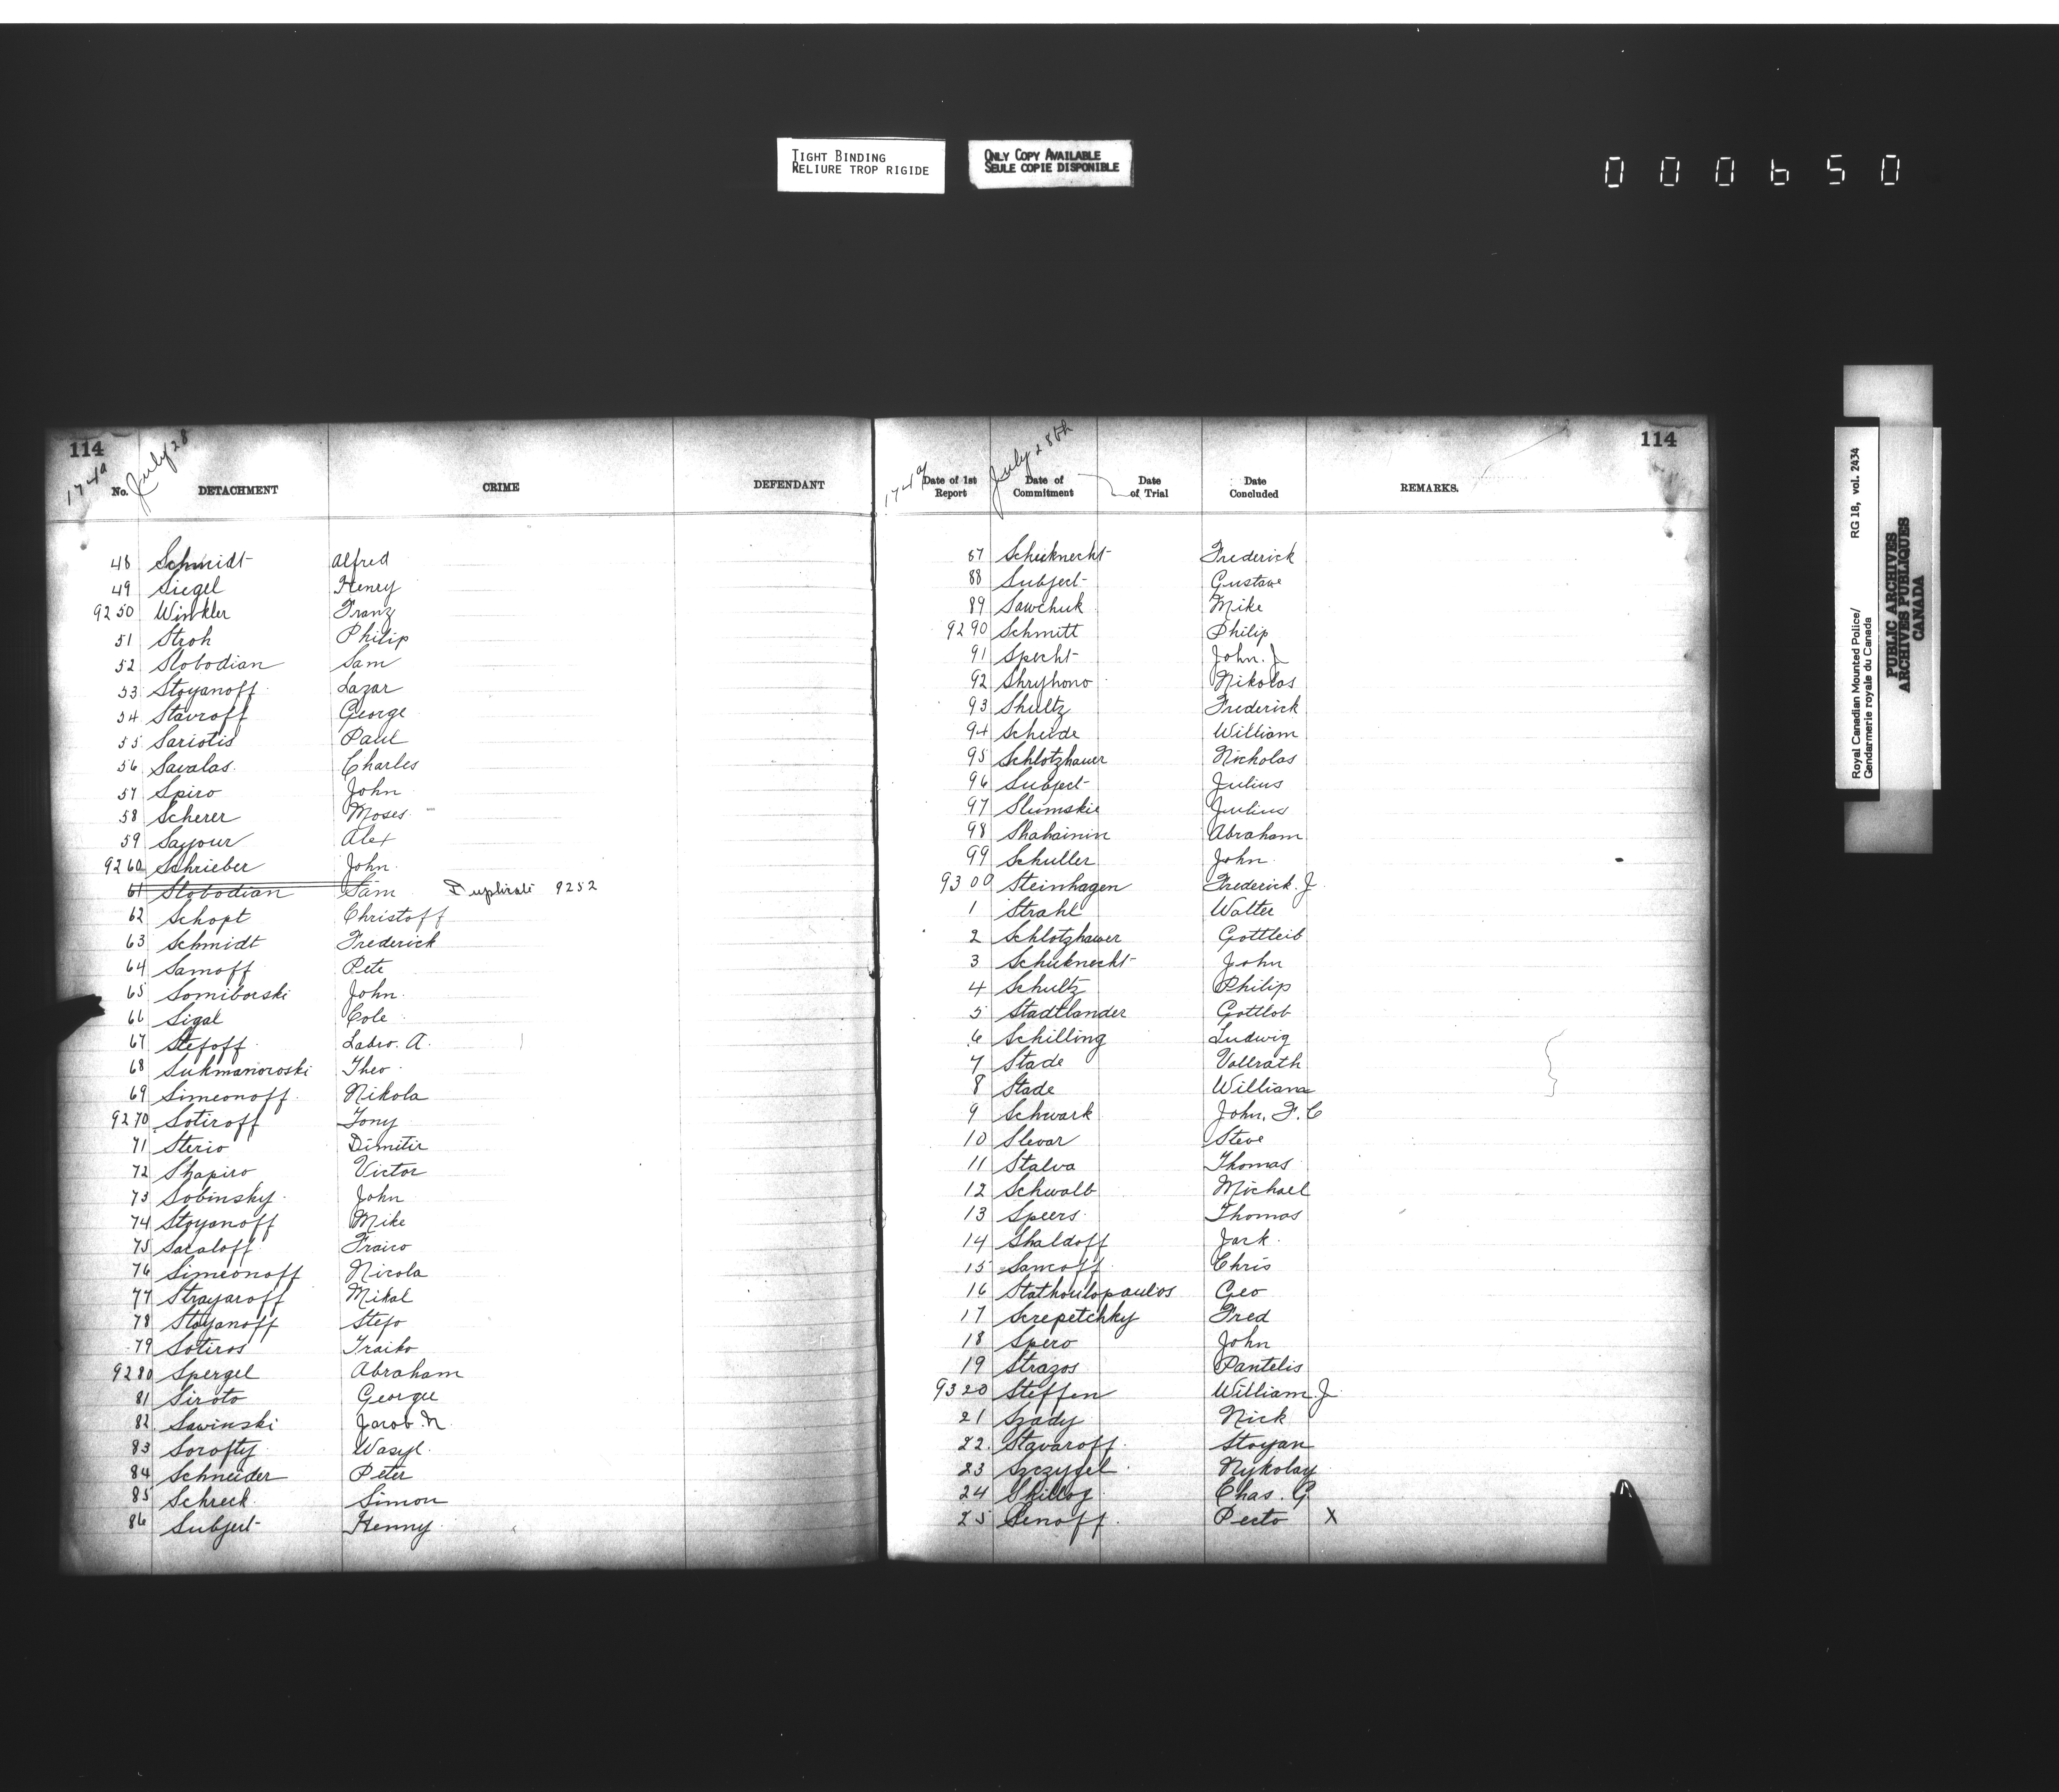 TIGHT BINDING
RELIURE TROP RIGIDE
ONLY COPY AVAILABLE
SEULE COPIE DISPONIBLE
000650
114
174a July 28
No. DETACHMENT CRIME DEFENDANT
48 Schmidt Alfred
49 Siegel Henry
9250 Winkler Franz
51 Stroh Philip
52 Slobodian Sam
53 Stoyanoff Lazar
54 Stavroff George
55 Sariotis Paul
56 Savalas Charles
57 Spiro John
58 Scherer Moses
59 Sayour Alex
9260 Schrieber John
61 Slobodian Sam Duplicate 9252
62 Schopt Christoff
63 Schmidt Frederick
64 Samoff Pete
65 Somiborski John
66 Sigal Cole
67 Stefoff Labro. A.
68 Theo
69 Simeonoff Nikola
9270 Sotiroff Tony
71 Sterio Dimitir
72 Shapiro Victor
73 Sobinsky John
74 Stoyanoff Mike
75 Saraloff Traico
76 Simeonoff Nicola
77 Strayaroff Mikal
78 Stoyanoff Stefo
79 Sotiros Traiko
9280 Spergel Abraham
81 Siroto George
82 Sawinski Jacob. N.
83 Sorofty Wasyl
84 Schneider Peter
85 Schreck Simon
86 Subject Henny
114
174a July 28th
Date of 1st Report Date of Commitment Date of Trial Date Concluded REMARKS.
87 Schuknecht Frederick
88 Subject Gustave
89 Sawchuk Mike
9290 Schmitt Philip
91 Specht John. J
92 Shryhono Nikolas
93 Shultz Frederick
94 Scheide William
95 Schlotzhauer Nicholas
96 Subject Julius
97 Slumskie Julius
98 Shahainin Abraham
99 Schuller John
9300 Steinhagen Frederick. J
1 Strahl Walter
2 Schlotzhauer Gottleib
3 Schuknecht John
4 Schultz Philip
5 Stadtlander Gottlob
6 Schilling Ludwig
7 Stade Vollrath
8 Stade William
9 Schwark John. F. C
10 Slevar Steve
11 Stalva Thomas
12 Schwalb Michael
13 Speers Thomas
14 Shaldoff Jack
15 Samcoff Chris
16 Stathoulopoulos Geo
17 Screpetchky Fred
18 Spero John
19 Strazos Pantelis
9320 Steffen William J
21 Szady Nick
22 Stavaroff Stoyan
23 Szczygel Nykolay
24 Skillog Chas. G
25 Senoff Pecto X
Royal Canadian Mounted Police/
Gendarmerie royale du Canada
RG 18, vol. 2434
PUBLIC ARCHIVES
ARCHIVES PUBLIQUES
CANADA